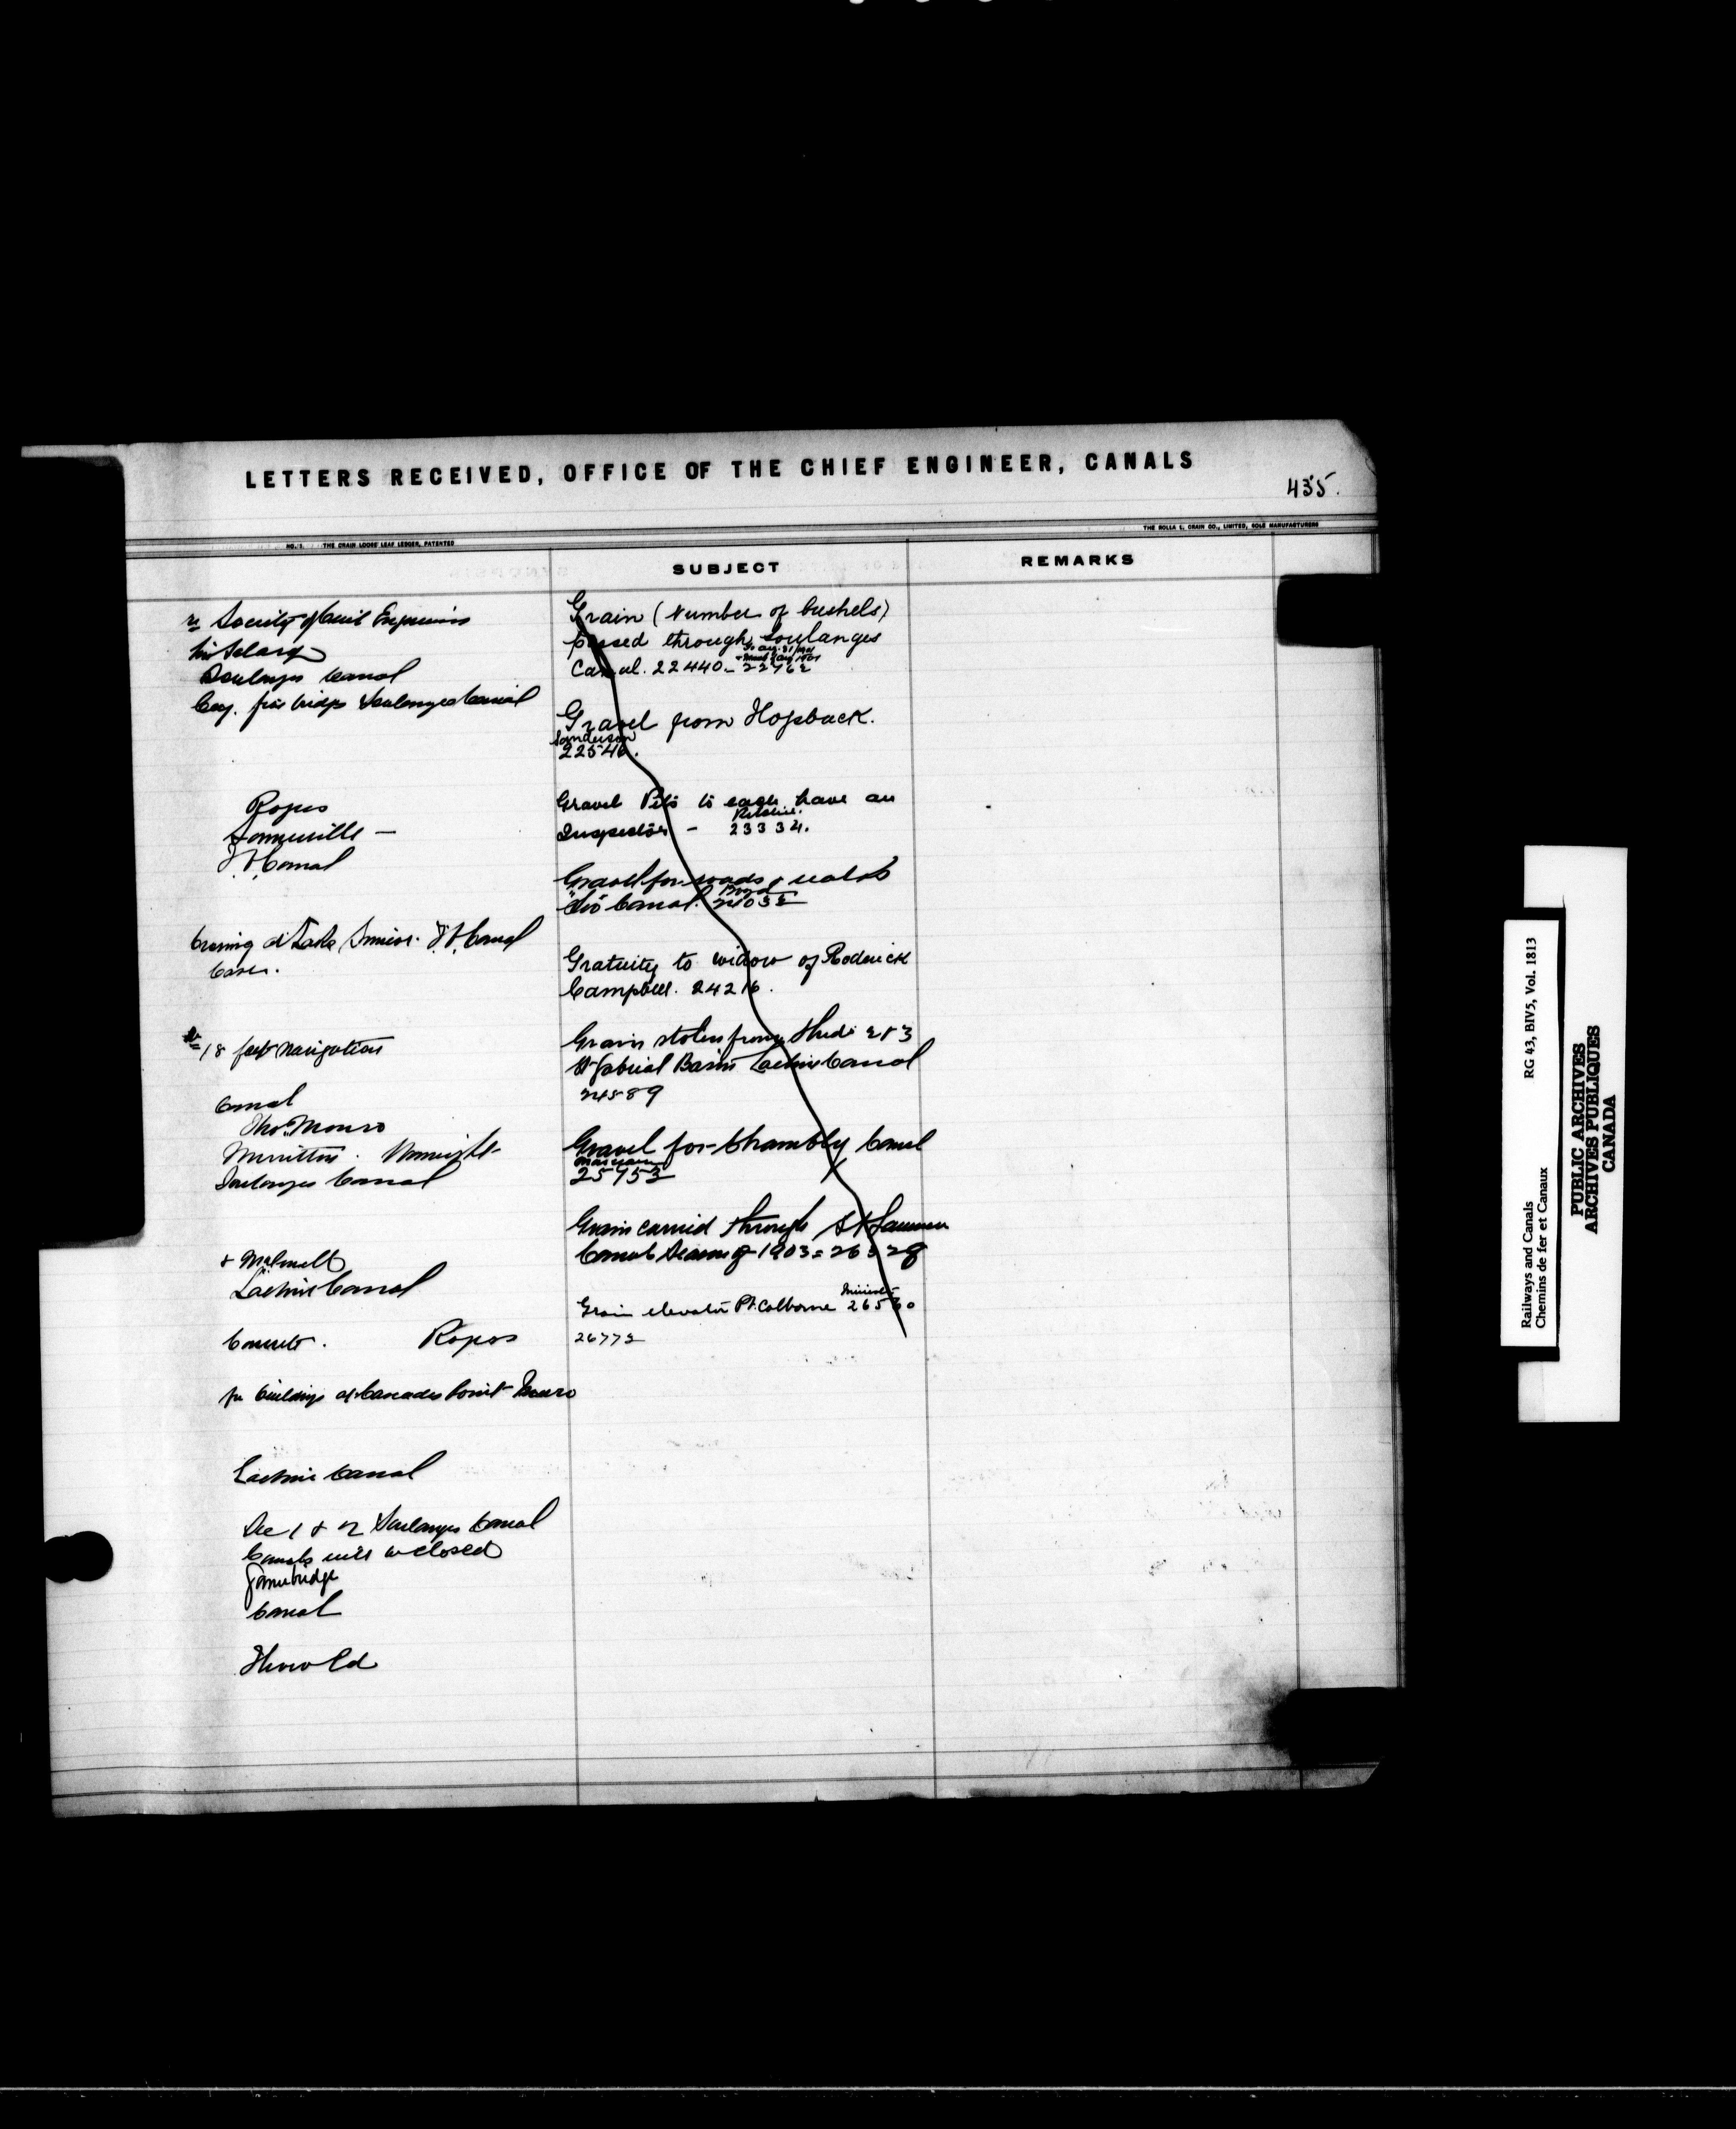 LETTERS RECEIVED, OFFICE OF THE CHIEF ENGINEER, CANALS
435.
THE ROLLA L. CRAIN CO., LIMITED, SOLE MANUFACTURERS
NO. 1. THE CRAIN LOOSE LEAF LEDGER, PATENTED
SUBJECT
REMARKS
re Society of Civil Engineers
his salary
Soulanges Canal
for bridge Soulanges Canal
Ropes
Somerville —
Canal
crossing at Lake Simcoe. Canal
18 feet navigation
Canal
Thos. Monro
Merritton.
Soulanges Canal
+
Lachine Canal
Concrete. Ropes
for buildings at Cascades Point Monro
Lachine Canal
Sec 1 & 2 Soulanges Canal
Canals will be closed
Canal
Thorold
Grain (Number of bushels)
passed through Soulanges
Canal. 22440 - 22762
Gravel from Hogsback.
Sanderson
22546.
Gravel Pits to each have an
Ritchie.
Inspector - 23334.
Gravel for roads &
Boyd
Canal.
Gratuity to widow of Roderick
Campbell. 24216.
Grain stolen from Sheds 2 & 3
St Gabriel Basin Lachine Canal
24589
Gravel for Chambly Canal
25753
Grain carried through St Lawrence
Canals Season of 1903 = 26328
Grain elevator Pt. Colborne 26560
26772
Railways and Canals RG 43, BIV5, Vol. 1813
Chemins de fer et Canaux
PUBLIC ARCHIVES
ARCHIVES PUBLIQUES
CANADA